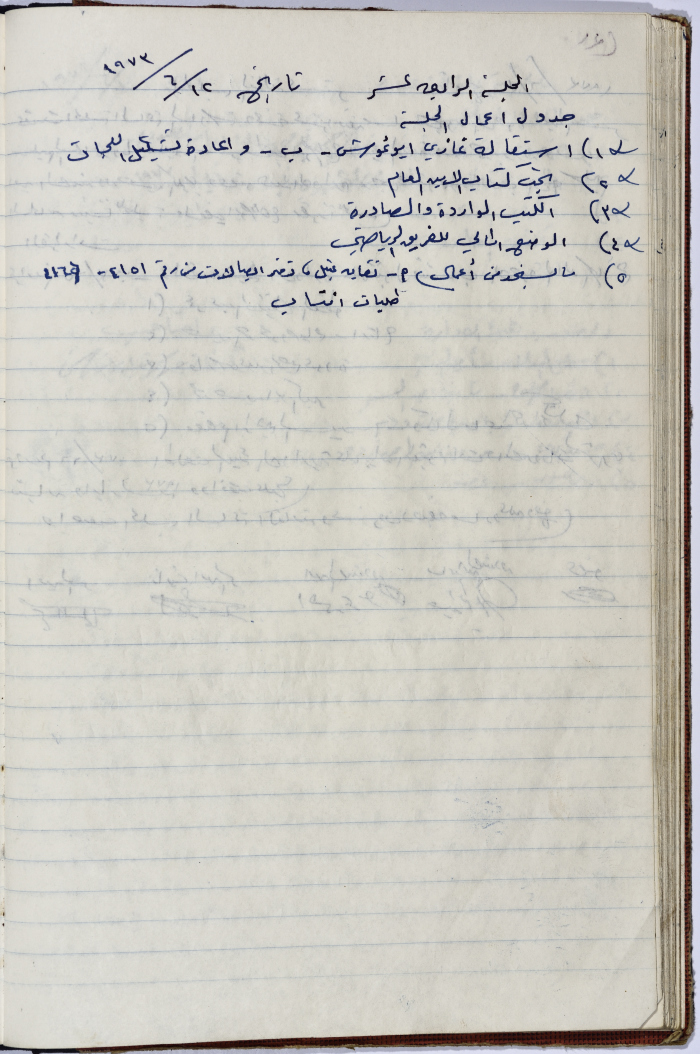 الجلسة الرابعة عشر تاريخ ١٢/٦/١٩٧٣
جدول اعمال الجلسة
١) استقالة غازي ابو غوش - ب - واعادة تشكيل اللجان
٢) بحث كتاب الامين العام
٣) الكتب الواردة والصادرة
٤) الوضع المالي للفريق الرياضي
٥) ما يستجد من أعمال / م - تفقد الايصالات من رقم ٤١٥١ -
طلبات انتساب